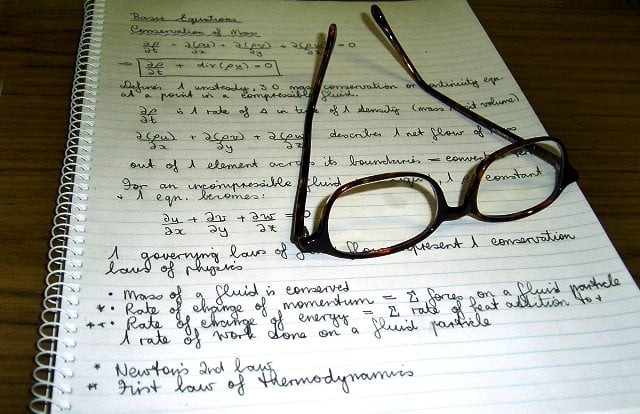 Basic Equations
Conservation of Mass
∂ρ/∂t + ∂(ρu)/∂x + ∂(ρv)/∂y + ∂(ρw)/∂z = 0
⇒ ∂ρ/∂t + div(ρu) = 0
Defines 1 unsteady, 3D mass conservation or continuity eqn
at a point in a compressible fluid.
∂ρ/∂t is 1 rate of Δ in time of 1 density (mass / unit volume)
∂(ρu)/∂x + ∂(ρv)/∂y + ∂(ρw)/∂z describes 1 net flow of mass
out of 1 element across its boundaries =
For an incompressible fluid 1 constant
+ 1 eqn. becomes:
∂u/∂x + ∂v/∂y + ∂w/∂z = 0
1 governing laws of flow represent 1 conservation
laws of physics
• Mass of a fluid is conserved
*• Rate of change of momentum = Σ forces on a fluid particle
**• Rate of change of energy = Σ rate of heat addition to +
1 rate of work done on a fluid particle
* Newton's 2nd law
** First law of thermodynamics